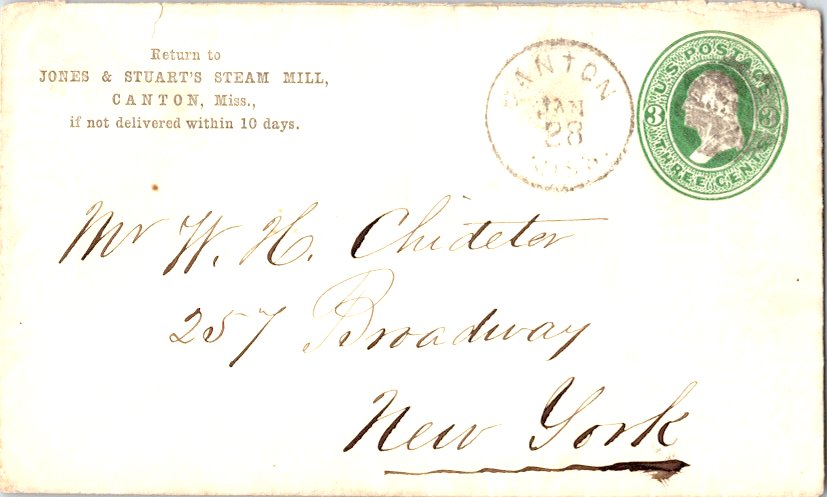 Return to
JONES & STUART'S STEAM MILL,
CANTON, Miss.,
if not delivered within 10 days.
CANTON
JAN
28
MISS.
U.S. POSTAGE
3 3
THREE CENTS
Mr W. H. Chideter
257 Broadway
New York